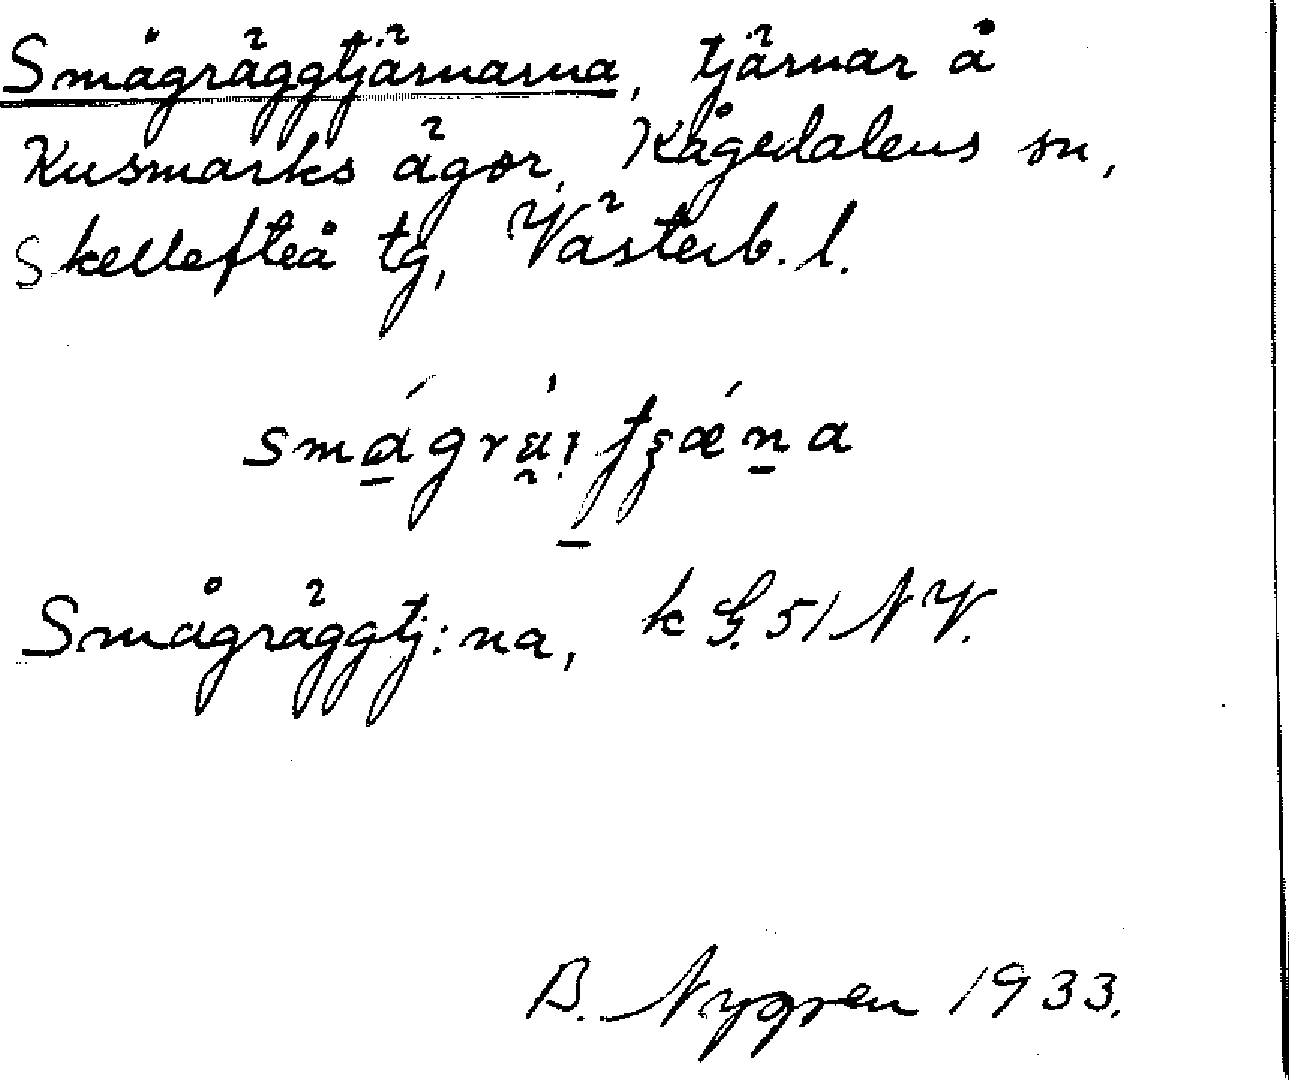 Smågräggtjärnarna, tjärnar å
Kusmarks ägor, Kågedalens sn,
Skellefteå tg, Västerb. l.
Smågräggtj:na, k G. 51 NV.
B. Nygren 1933.